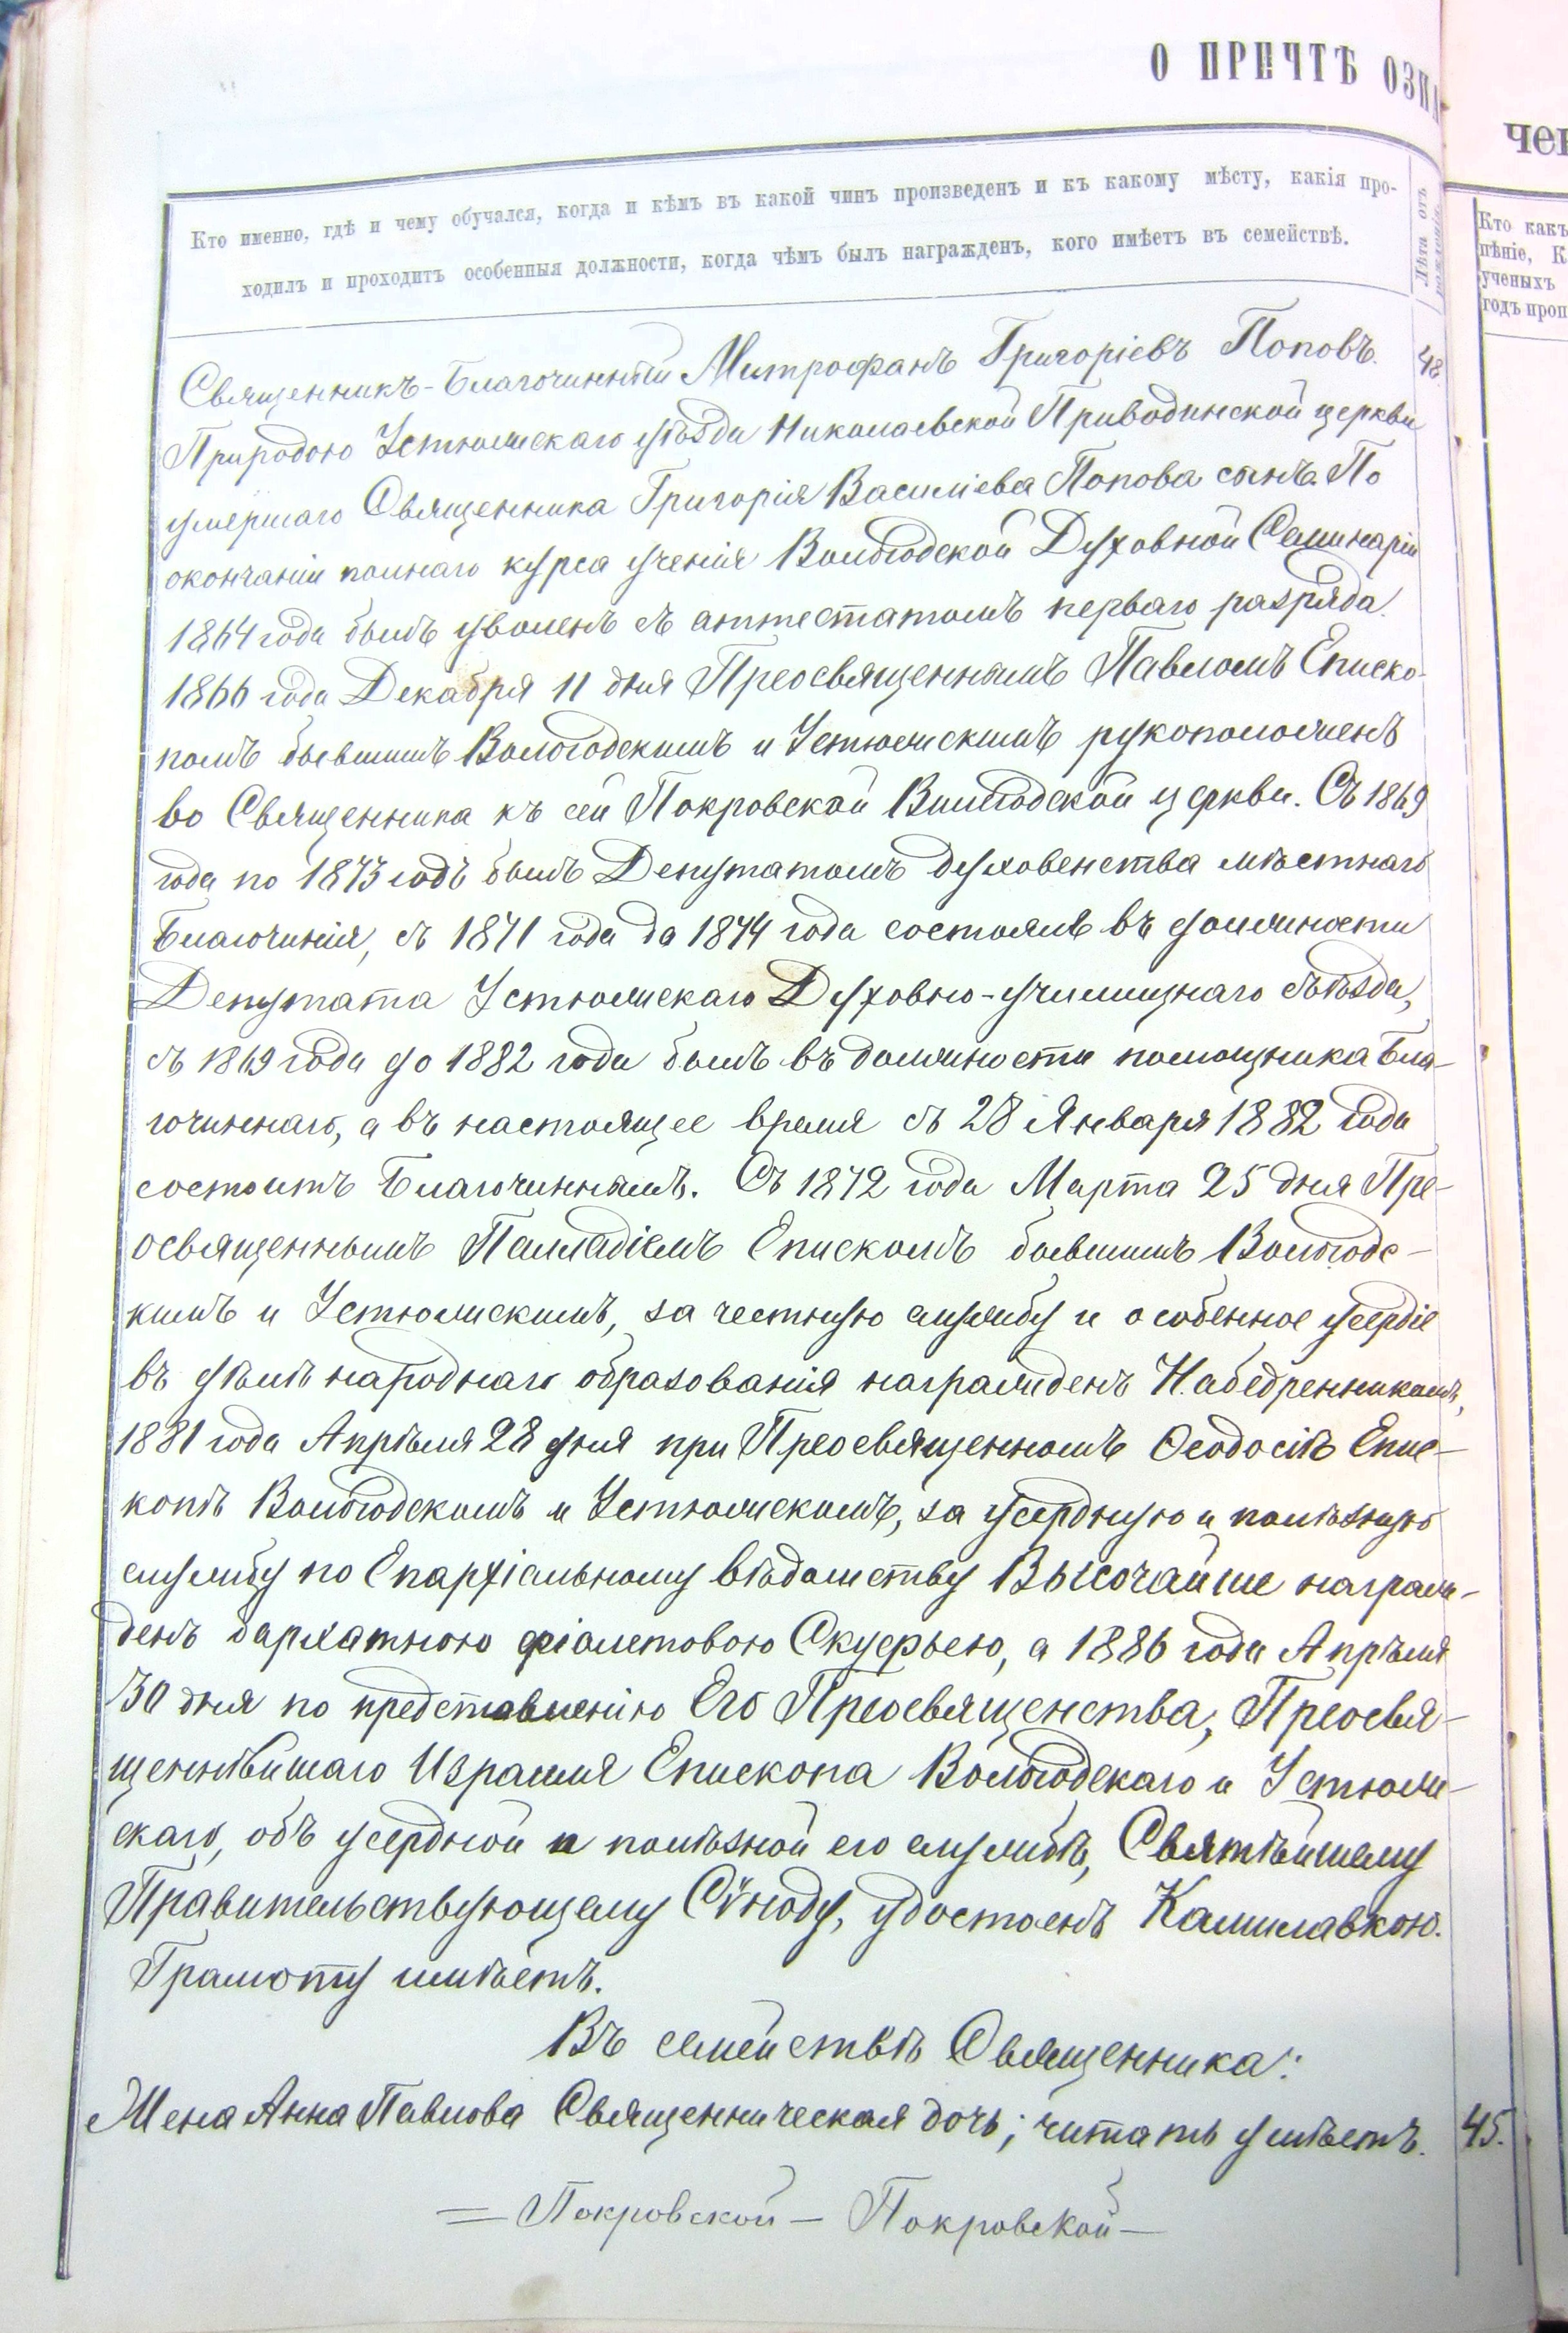 О ПРИЧТѢ ОЗНА
Кто именно, гдѣ и чему обучался, когда и кѣмъ въ какой чинъ произведенъ и къ какому мѣсту, какія про-
ходилъ и проходитъ особенныя должности, когда чѣмъ былъ награжденъ, кого имѣетъ въ семействѣ.
Лѣта отъ рожденія.
Священникъ-Благочинный Митрофанъ Григоріевъ Поповъ. 48.
Природою Устюжскаго уѣзда Николаевской Приводинской церкви
умершаго Священника Григорія Василіева Попова сынъ. По
окончаніи полнаго курса ученія Вологодской Духовной Семинаріи
1864 года былъ уволенъ съ аттестатомъ перваго разряда.
1866 года Декабря 11 дня Преосвященнымъ Павломъ Еписко-
помъ бывшимъ Вологодскимъ и Устюжскимъ рукоположенъ
во Священника къ сей Покровской церкви. Съ 1869
года по 1873 годъ былъ Депутатомъ духовенства мѣстнаго
Благочинія, съ 1871 года до 1874 года состоялъ въ должности
Депутата Устюжскаго Духовно-училищнаго съѣзда,
съ 1869 года до 1882 года былъ въ должности помощника Бла-
гочиннаго, а въ настоящее время съ 28 Января 1882 года
состоитъ Благочиннымъ. Съ 1872 года Марта 25 дня Пре-
освященнымъ Палладіемъ Епискомъ бывшимъ Вологодс-
кимъ и Устюжскимъ, за честную службу и особенное усердіе
въ дѣлѣ народнаго образованія награжденъ Набедренникомъ,
1881 года Апрѣля 28 дня при Преосвященномъ Ѳеодосіѣ Епис-
копѣ Вологодскомъ и Устюжскомъ, за усердную и полѣзную
службу по Епархіальному вѣдомству Высочайше награж-
денъ бархатною фіолетовою Скуфьею, а 1886 года Апрѣля
30 дня по представленію Его Преосвященства, Преосвя-
щеннѣйшаго Израиля Епископа Вологодскаго и Устюж-
скаго, объ усердной и полѣзной его службѣ, Святѣйшему
Правительствующему Сѵноду, удостоенъ Камилавкою.
Грамоту имѣетъ.
Въ семействѣ Священника:
Жена Анна Павлова Священническая дочь; читать умѣетъ. 45.
= Покровской — Покровской —
чен
Кто какъ
пѣніе, К
ученыхъ
годъ проп